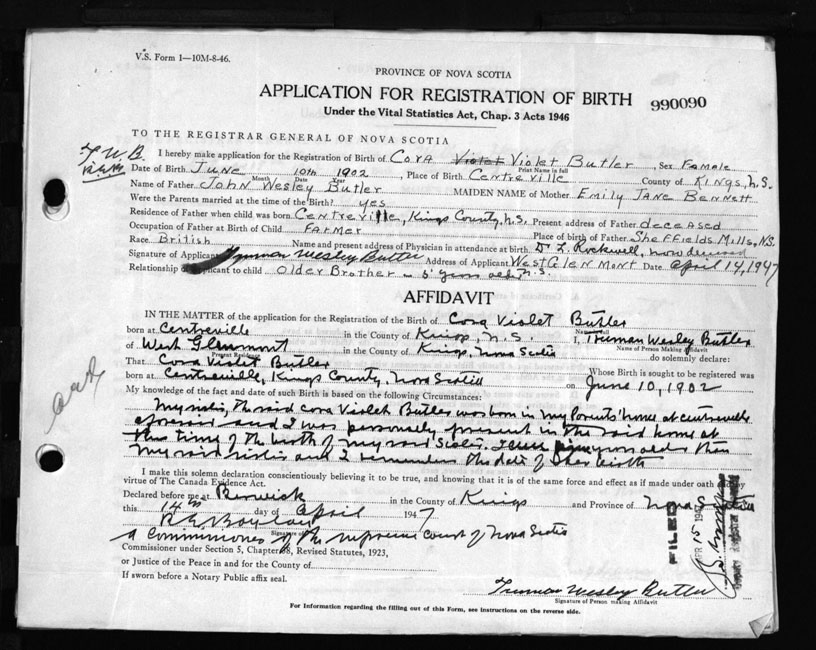 V.S. Form 1—10M-8-46.
PROVINCE OF NOVA SCOTIA
APPLICATION FOR REGISTRATION OF BIRTH 990090
Under the Vital Statistics Act, Chap. 3 Acts 1946
TO THE REGISTRAR GENERAL OF NOVA SCOTIA
T.W.B.
R.E.B.
I hereby make application for the Registration of Birth of Cora Violet Violet Butler Sex Female
Print Name in full
Date of Birth June 10th 1902, Place of Birth Centreville County of Kings, N.S.
Month Date Year
Name of Father John Wesley Butler MAIDEN NAME of Mother Emily Jane Bennett
Were the Parents married at the time of the Birth? yes
Residence of Father when child was born Centreville, Kings County, N.S. Present address of Father deceased
Occupation of Father at Birth of Child Farmer Place of birth of Father Sheffields Mills, N.S.
Race British Name and present address of Physician in attendance at birth Dr. Rockwell, now deceased
Signature of Applicant Truman Wesley Butler Address of Applicant West Glenmont Date April 14, 1947
Relationship of Applicant to child Older Brother - 5 years older N.S.
AFFIDAVIT
IN THE MATTER of the application for the Registration of the Birth of Cora Violet Butler
Name in full
born at Centreville in the County of Kings, N.S. I, Truman Wesley Butler
Name of Person Making Affidavit
of West Glenmont in the County of Kings, Nova Scotia do solemnly declare:
Present Residence
That Cora Violet Butler Whose Birth is sought to be registered was
born at Centreville, Kings County, Nova Scotia on June 10, 1902
My knowledge of the fact and date of such Birth is based on the following Circumstances:
My sister, the said Cora Violet Butler was born in my Parents' home at Centreville
aforesaid and I was personally present in the said home at
the time of the birth of my said sister. I am years older than
my said sister and I remember the date of her birth
I make this solemn declaration conscientiously believing it to be true, and knowing that it is of the same force and effect as if made under oath and by
virtue of The Canada Evidence Act.
Declared before me at Berwick in the County of Kings and Province of Nova Scotia
this 14th day of April 1947
Signature
a Commissioner of the supreme court of Nova Scotia
Commissioner under Section 5, Chapter 38, Revised Statutes, 1923,
or Justice of the Peace in and for the County of
If sworn before a Notary Public affix seal.
Truman Wesley Butler
Signature of Person making Affidavit
For Information regarding the filling out of this Form, see instructions on the reverse side.
FILED
APR 15 1947